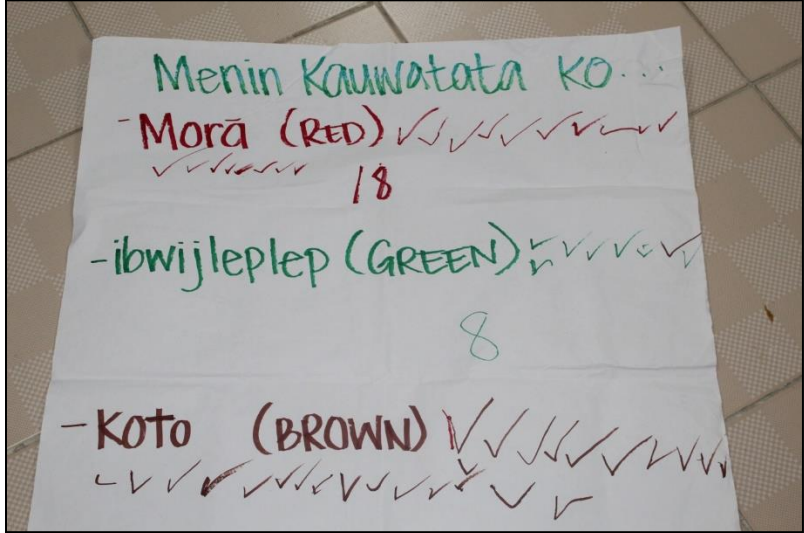 Menin Kauwatata KO...
- Morā (RED) ✓✓✓✓✓✓✓✓✓
✓✓✓✓✓✓✓✓
18
- ibwijleplep (GREEN) ✓✓✓✓✓✓✓
8
- Koto (BROWN) ✓✓✓✓✓✓✓✓✓✓
✓✓✓✓✓✓✓✓✓✓✓✓✓✓